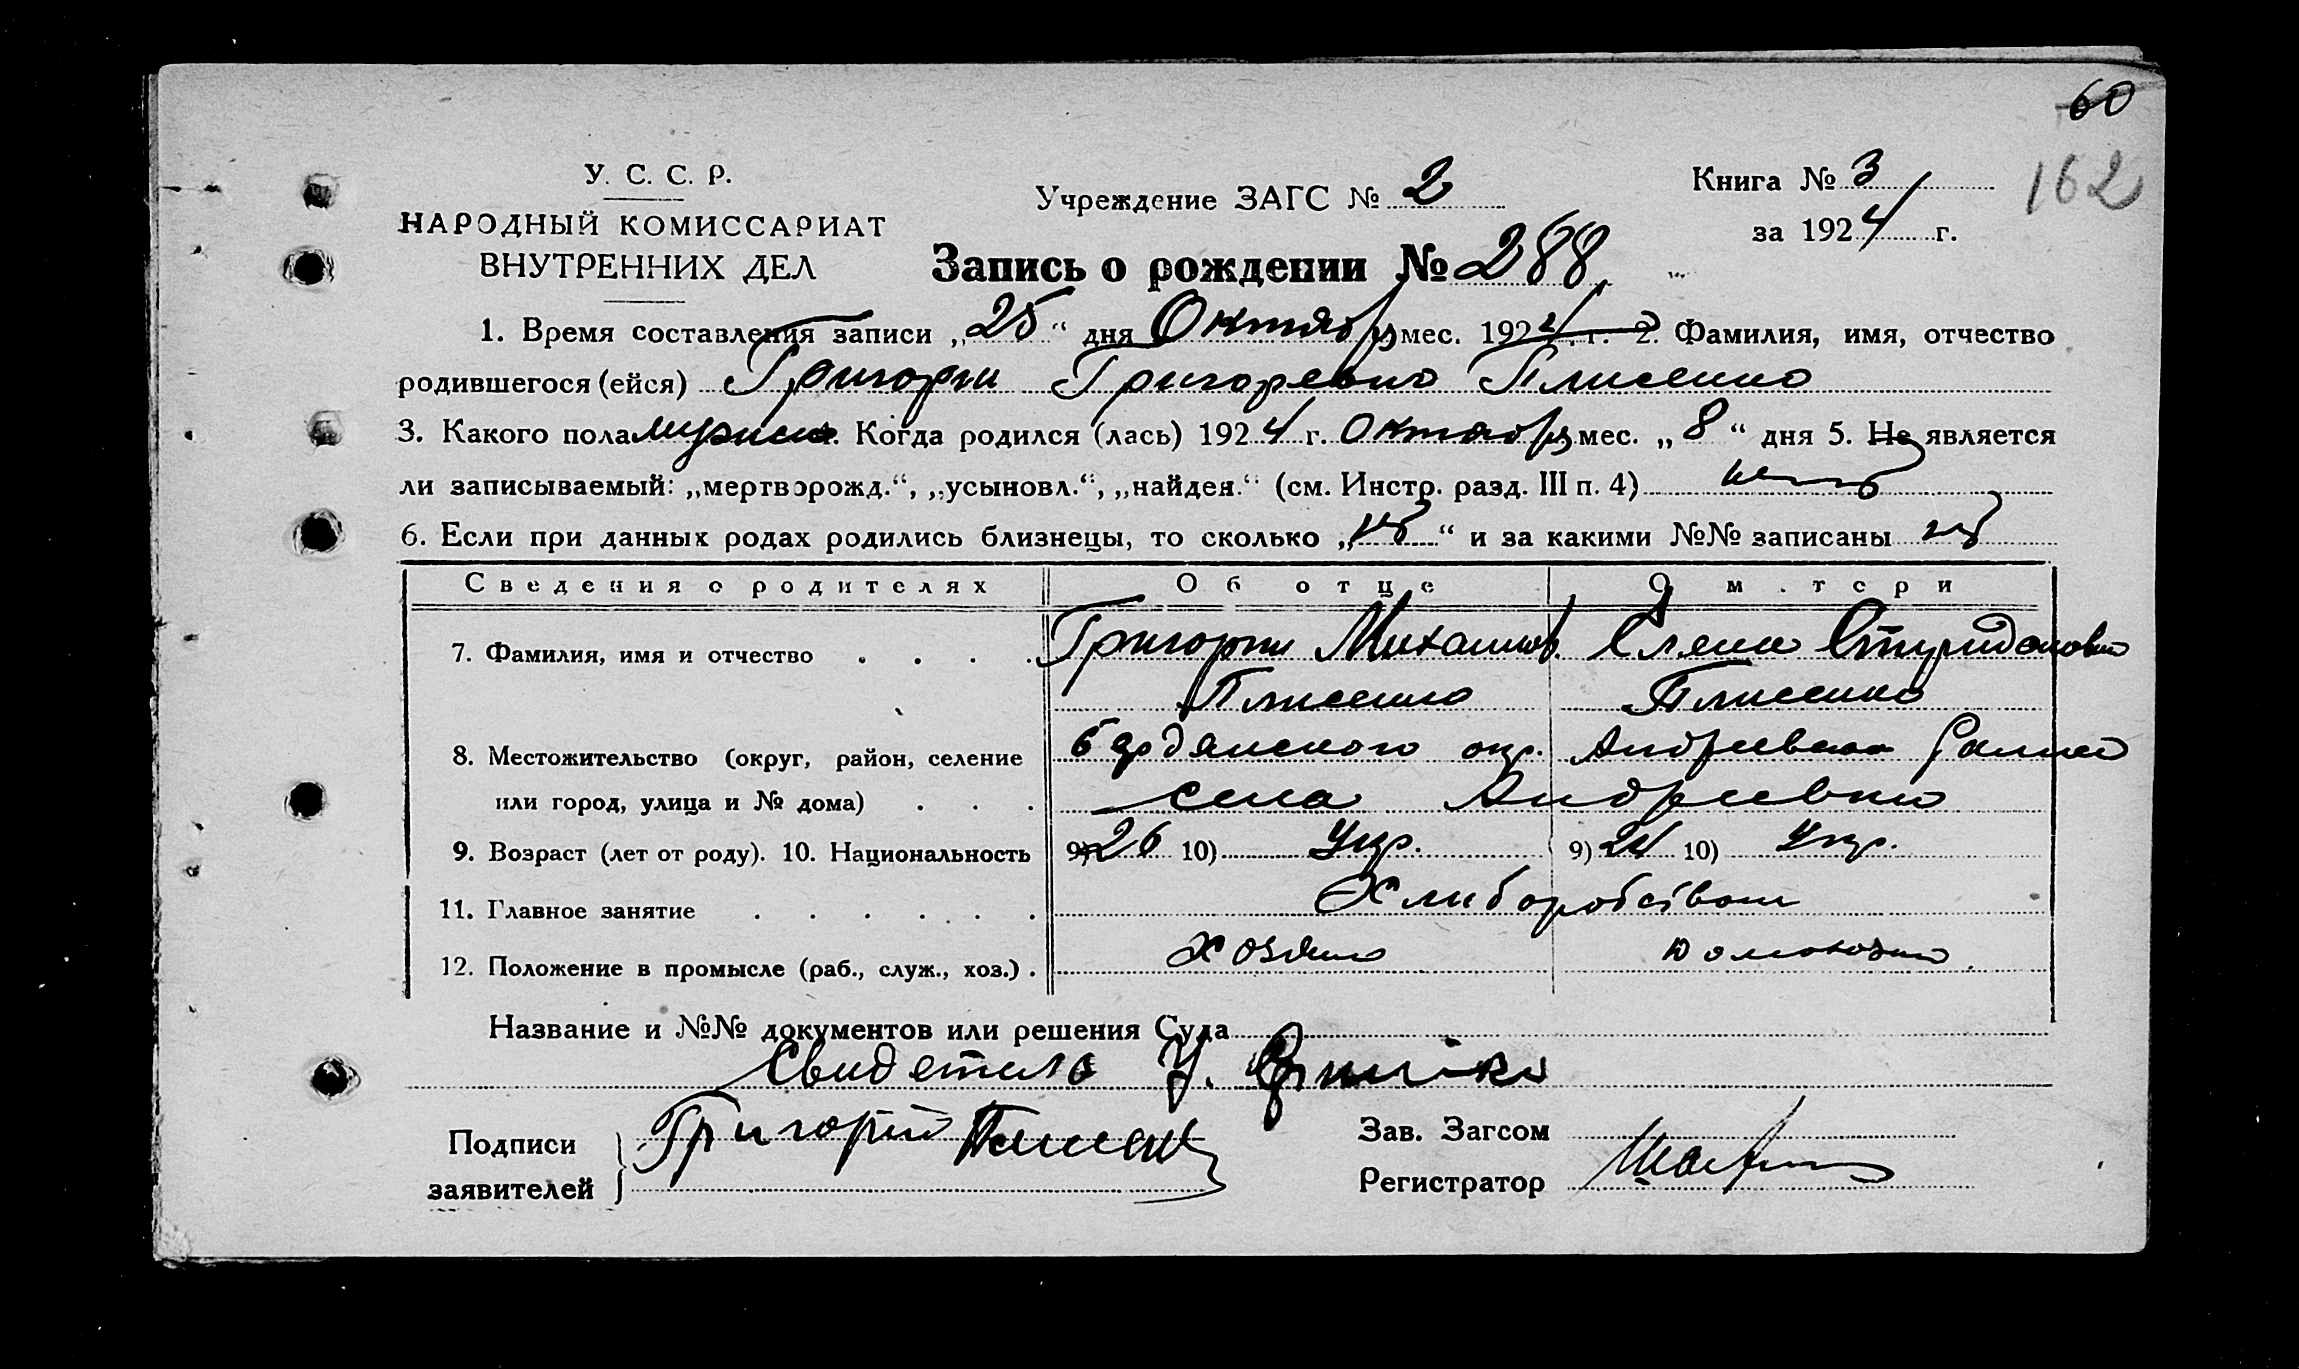 60
162
У. С. С. Р.
НАРОДНЫЙ КОМИССАРИАТ
ВНУТРЕННИХ ДЕЛ
Учреждение ЗАГС № 2
Книга № 3
за 1924 г.
Запись о рождении № 288
1. Время составления записи „25“ дня Октября мес. 1924 г. 2. Фамилия, имя, отчество
родившегося (ейся) Григорий Григорьевич
3. Какого пола Когда родился (лась) 1924 г. Октября мес. „8“ дня 5. Не является
ли записываемый: „мертворожд.“, „усыновл.“, „найден.“ (см. Инстр. разд. III п. 4) нет
6. Если при данных родах родились близнецы, то сколько „ “ и за какими №№ записаны
Сведения о родителях Об отце О м.тери
7. Фамилия, имя и отчество Григорий Михайлов. Елена
8. Местожительство (округ, район, селение Бердянского окр. Андреевского
или город, улица и № дома) села Андреевки
9. Возраст (лет от роду). 10. Национальность 9) 26 10) Укр. 9) 24 10) Укр.
11. Главное занятие Хлиборобством
12. Положение в промысле (раб., служ., хоз.) Хозяин домохоз.
Название и №№ документов или решения Суда
Свидетель
Подписи заявителей Григорій
Зав. Загсом
Регистратор